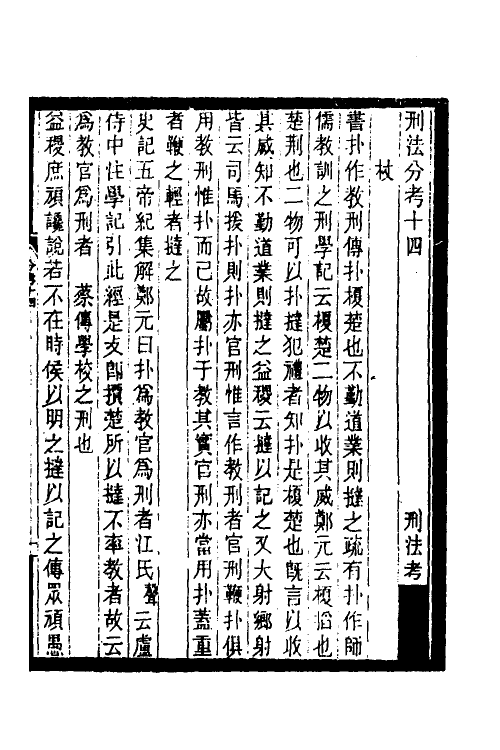 刑法分考十四 刑法考
杖
書扑作教刑傳扑榎楚也不勤道業則撻之疏有扑作師
儒教訓之刑學記云榎楚二物以收其威鄭元云榎榙也
楚荆也二物可以扑撻犯禮者知扑是榎楚也旣言以收
其威知不勤道業則撻之益稷云撻以記之又大射鄉射
皆云司馬搢扑則扑亦官刑惟言作教刑者官刑鞭扑俱
用教刑惟扑而已故屬扑于教其實官刑亦當用扑蓋重
者鞭之輕者撻之
史記五帝紀集解鄭元曰扑爲教官爲刑者江氏聲云盧
侍中注學記引此經是攴卽榎楚所以撻不率教者故云
爲教官爲刑者 蔡傳學校之刑也
益稷庶頑讒說若不在時侯以明之撻以記之傳眾頑愚